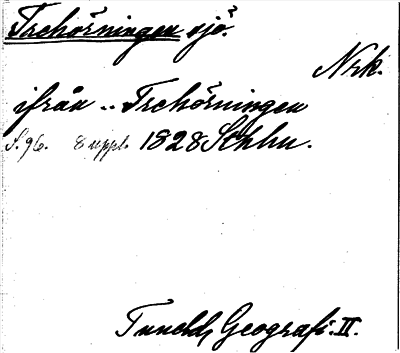 Trehörningen sjö.
Nrk.
ifrån .. Trehörningen
S. 96. 8 uppl. 1828 Sthlm.
Tuneld, Geografi. II.